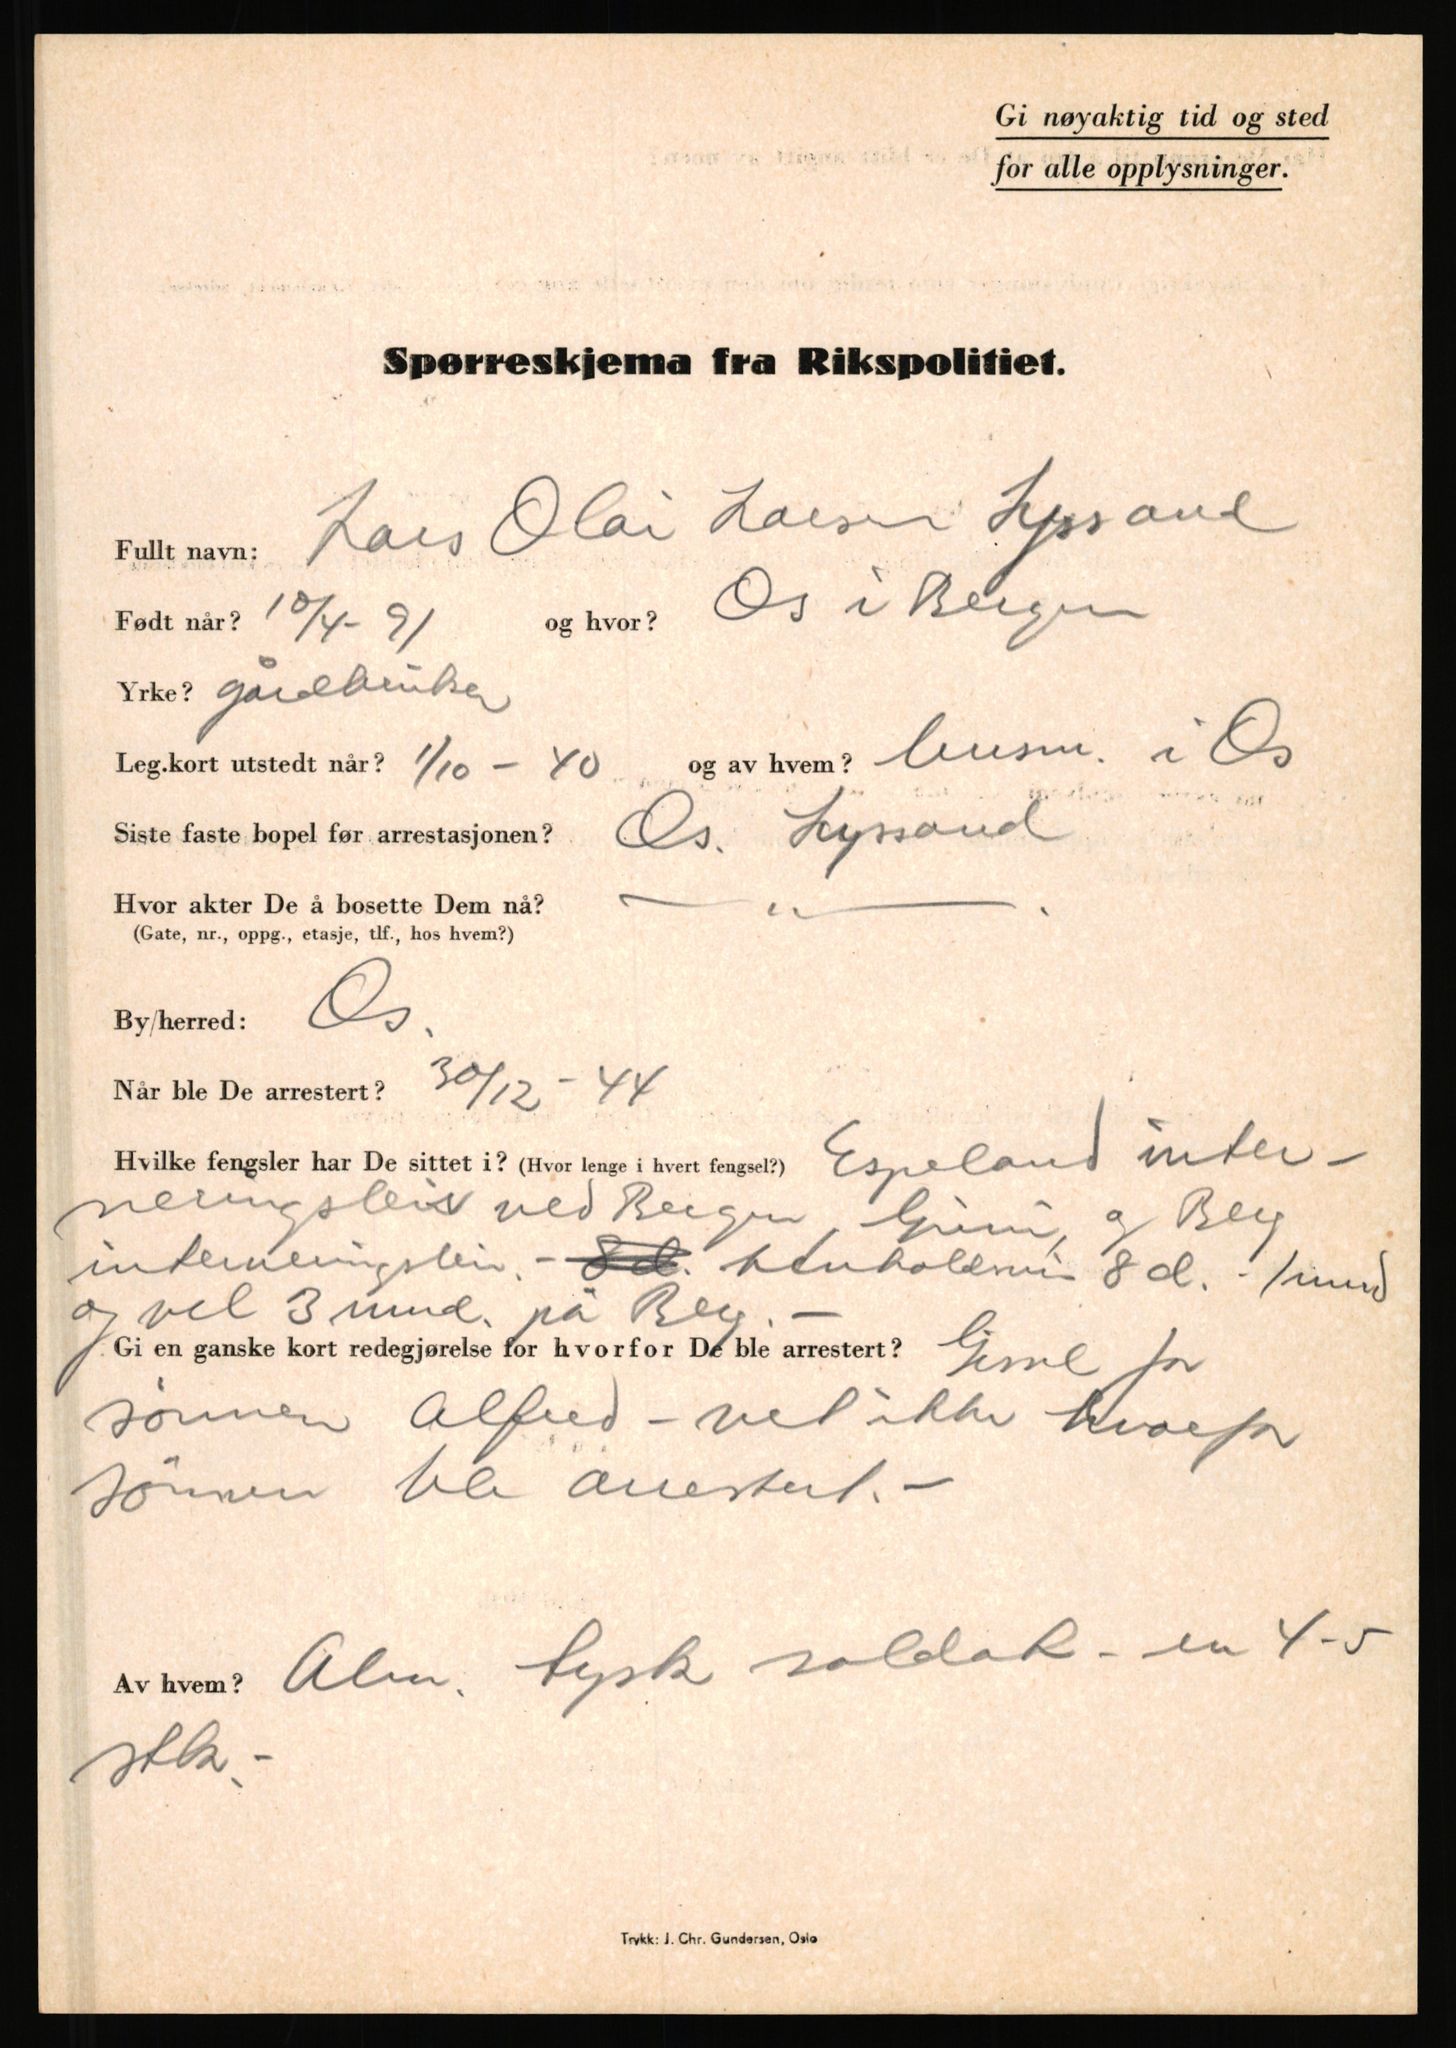 Gi nøyaktig tid og sted
for alle opplysninger.
Spørreskjema fra Rikspolitiet.
Fullt navn: Lars Olai Larsen Lyssand
Født når? 10/4-91 og hvor? Os i Bergen
Yrke? gårdbruker
Leg.kort utstedt når? 1/10 - 40 og av hvem? lensm. i Os
Siste faste bopel før arrestasjonen? Os. Lyssand
Hvor akter De å bosette Dem nå? — „ — .
(Gate, nr., oppg., etasje, tlf., hos hvem?)
By/herred: Os.
Når ble De arrestert? 30/12 - 44
Hvilke fengsler har De sittet i? (Hvor lenge i hvert fengsel?) Espeland inter-
neringsleir ved Bergen, Grini, og Berg
interneringsleir. - 8 d. henholdsvis 8 d. - 1 mnd
og vel 3 mnd. på Berg. -
Gi en ganske kort redegjørelse for hvorfor De ble arrestert? Gissel for
sønnen Alfred - vet ikke hvorfor
sønnen ble arrestert. -
Av hvem? Alm. tysk soldat - en 4-5
stk. -
Trykk: J. Chr. Gundersen, Oslo